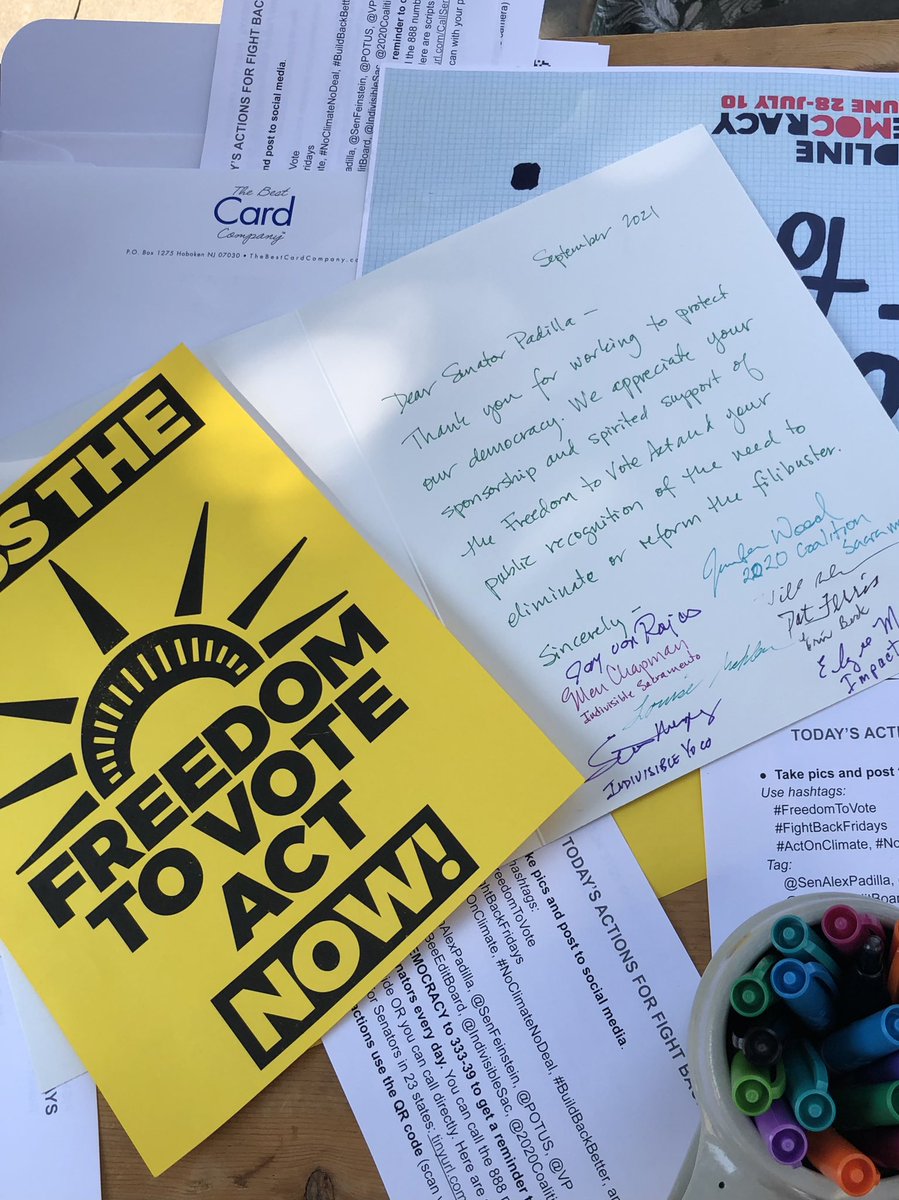 Y'S ACTIONS FOR FIGHT BAC
nd post to social media.
Vote
ridays
ate, #NoClimateNoDeal, #BuildBackBette
adilla, @SenFeinstein, @POTUS, @VP
itBoard, @IndivisibleSac, @2020Coaliti
reminder to c
the 888 numb
Here are scripts
yurl.com/CallSen
can with your p
camera)
The Best
Card
Company
P.O. Box 1275 Hoboken NJ 07030 • TheBestCardCompany.co
DLINE
EMOCRACY
UNE 28-JULY 10
to
September 2021
Dear Senator Padilla –
Thank you for working to protect
our democracy. We appreciate your
sponsorship and spirited support of
the Freedom to Vote Act and your
public recognition of the need to
eliminate or reform the filibuster.
Sincerely –
Jennifer Wood
2020 Coalition
Sacram
Joy von Rojas
Chapman
Indivisible Sacramento
Louise
Pat Ferris
Erin
Elyse M
Impact
INDIVISIBLE YOLO
OS THE
FREEDOM
TO VOTE
ACT
NOW!
TODAY'S ACTI
● Take pics and post t
Use hashtags:
#FreedomToVote
#FightBackFridays
#ActOnClimate, #No
Tag:
@SenAlexPadilla,
TODAY'S ACTIONS FOR FIGHT BA
ke pics and post to social media.
hashtags:
eedomToVote
ightBackFridays
ctOnClimate, #NoClimateNoDeal, #BuildBackBetter,
AlexPadilla, @SenFeinstein, @POTUS, @VP
BeeEditBoard, @IndivisibleSac, @2020Coaliti
nators every day. You can call the 888
EMOCRACY to 333-39 to get a reminder t
ide OR you can call directly. Here are
or Senators in 23 states: tinyurl.com
actions use the QR code (scan
YS